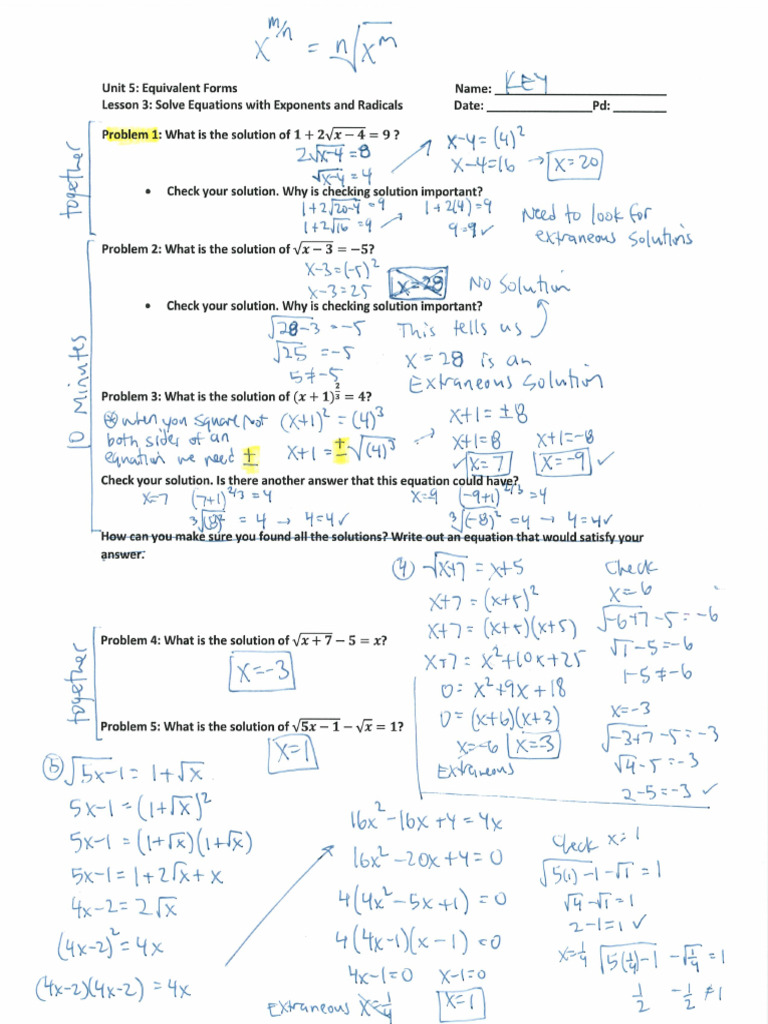 x^(m/n) = ⁿ√(x^m)
Unit 5: Equivalent Forms
Name: KEY
Lesson 3: Solve Equations with Exponents and Radicals
Date: ____________ Pd: ________
together
Problem 1: What is the solution of 1 + 2√(x − 4) = 9 ?
2√(x-4) = 8
√(x-4) = 4
x-4 = (4)²
x-4 = 16 → x = 20
• Check your solution. Why is checking solution important?
1+2√(20-4) = 9
1+2√16 = 9
1+2(4) = 9
9 = 9 ✓
Need to look for
extraneous solutions
10 Minutes
Problem 2: What is the solution of √(x − 3) = −5?
x-3 = (-5)²
x-3 = 25
x = 28
No Solution
• Check your solution. Why is checking solution important?
√(28-3) = -5
√25 = -5
5 ≠ -5
This tells us
x = 28 is an
Extraneous Solution
Problem 3: What is the solution of (x + 1)^(2/3) = 4?
⊛ when you square root
both sides of an
equation we need ±
(x+1)² = (4)³
x+1 = ±√(4)³
x+1 = ±8
x+1 = 8 x+1 = -8
✓ x = 7 x = -9 ✓
Check your solution. Is there another answer that this equation could have?
x=7 (7+1)^(2/3) = 4
³√(8)² = 4 → 4 = 4 ✓
x=-9 (-9+1)^(2/3) = 4
³√(-8)² = 4 → 4 = 4 ✓
How can you make sure you found all the solutions? Write out an equation that would satisfy your
answer.
④ √(x+7) = x+5
x+7 = (x+5)²
x+7 = (x+5)(x+5)
x+7 = x²+10x+25
0 = x²+9x+18
0 = (x+6)(x+3)
x = -6 x = -3
Extraneous
Check
x = -6
√(-6+7) -5 = -6
√1 -5 = -6
1-5 ≠ -6
x = -3
√(-3+7) -5 = -3
√4 -5 = -3
2-5 = -3 ✓
together
Problem 4: What is the solution of √(x + 7) − 5 = x?
x = -3
Problem 5: What is the solution of √(5x − 1) − √x = 1?
x = 1
⑤ √(5x-1) = 1+√x
5x-1 = (1+√x)²
5x-1 = (1+√x)(1+√x)
5x-1 = 1+2√x+x
4x-2 = 2√x
(4x-2)² = 4x
(4x-2)(4x-2) = 4x
16x²-16x+4 = 4x
16x²-20x+4 = 0
4(4x²-5x+1) = 0
4(4x-1)(x-1) = 0
4x-1=0 x-1=0
Extraneous x = 1/4 x = 1
Check x = 1
√(5(1)-1) -√1 = 1
√4 -√1 = 1
2-1 = 1 ✓
x = 1/4 √(5(1/4)-1) - √(1/4) = 1
1/2 - 1/2 ≠ 1